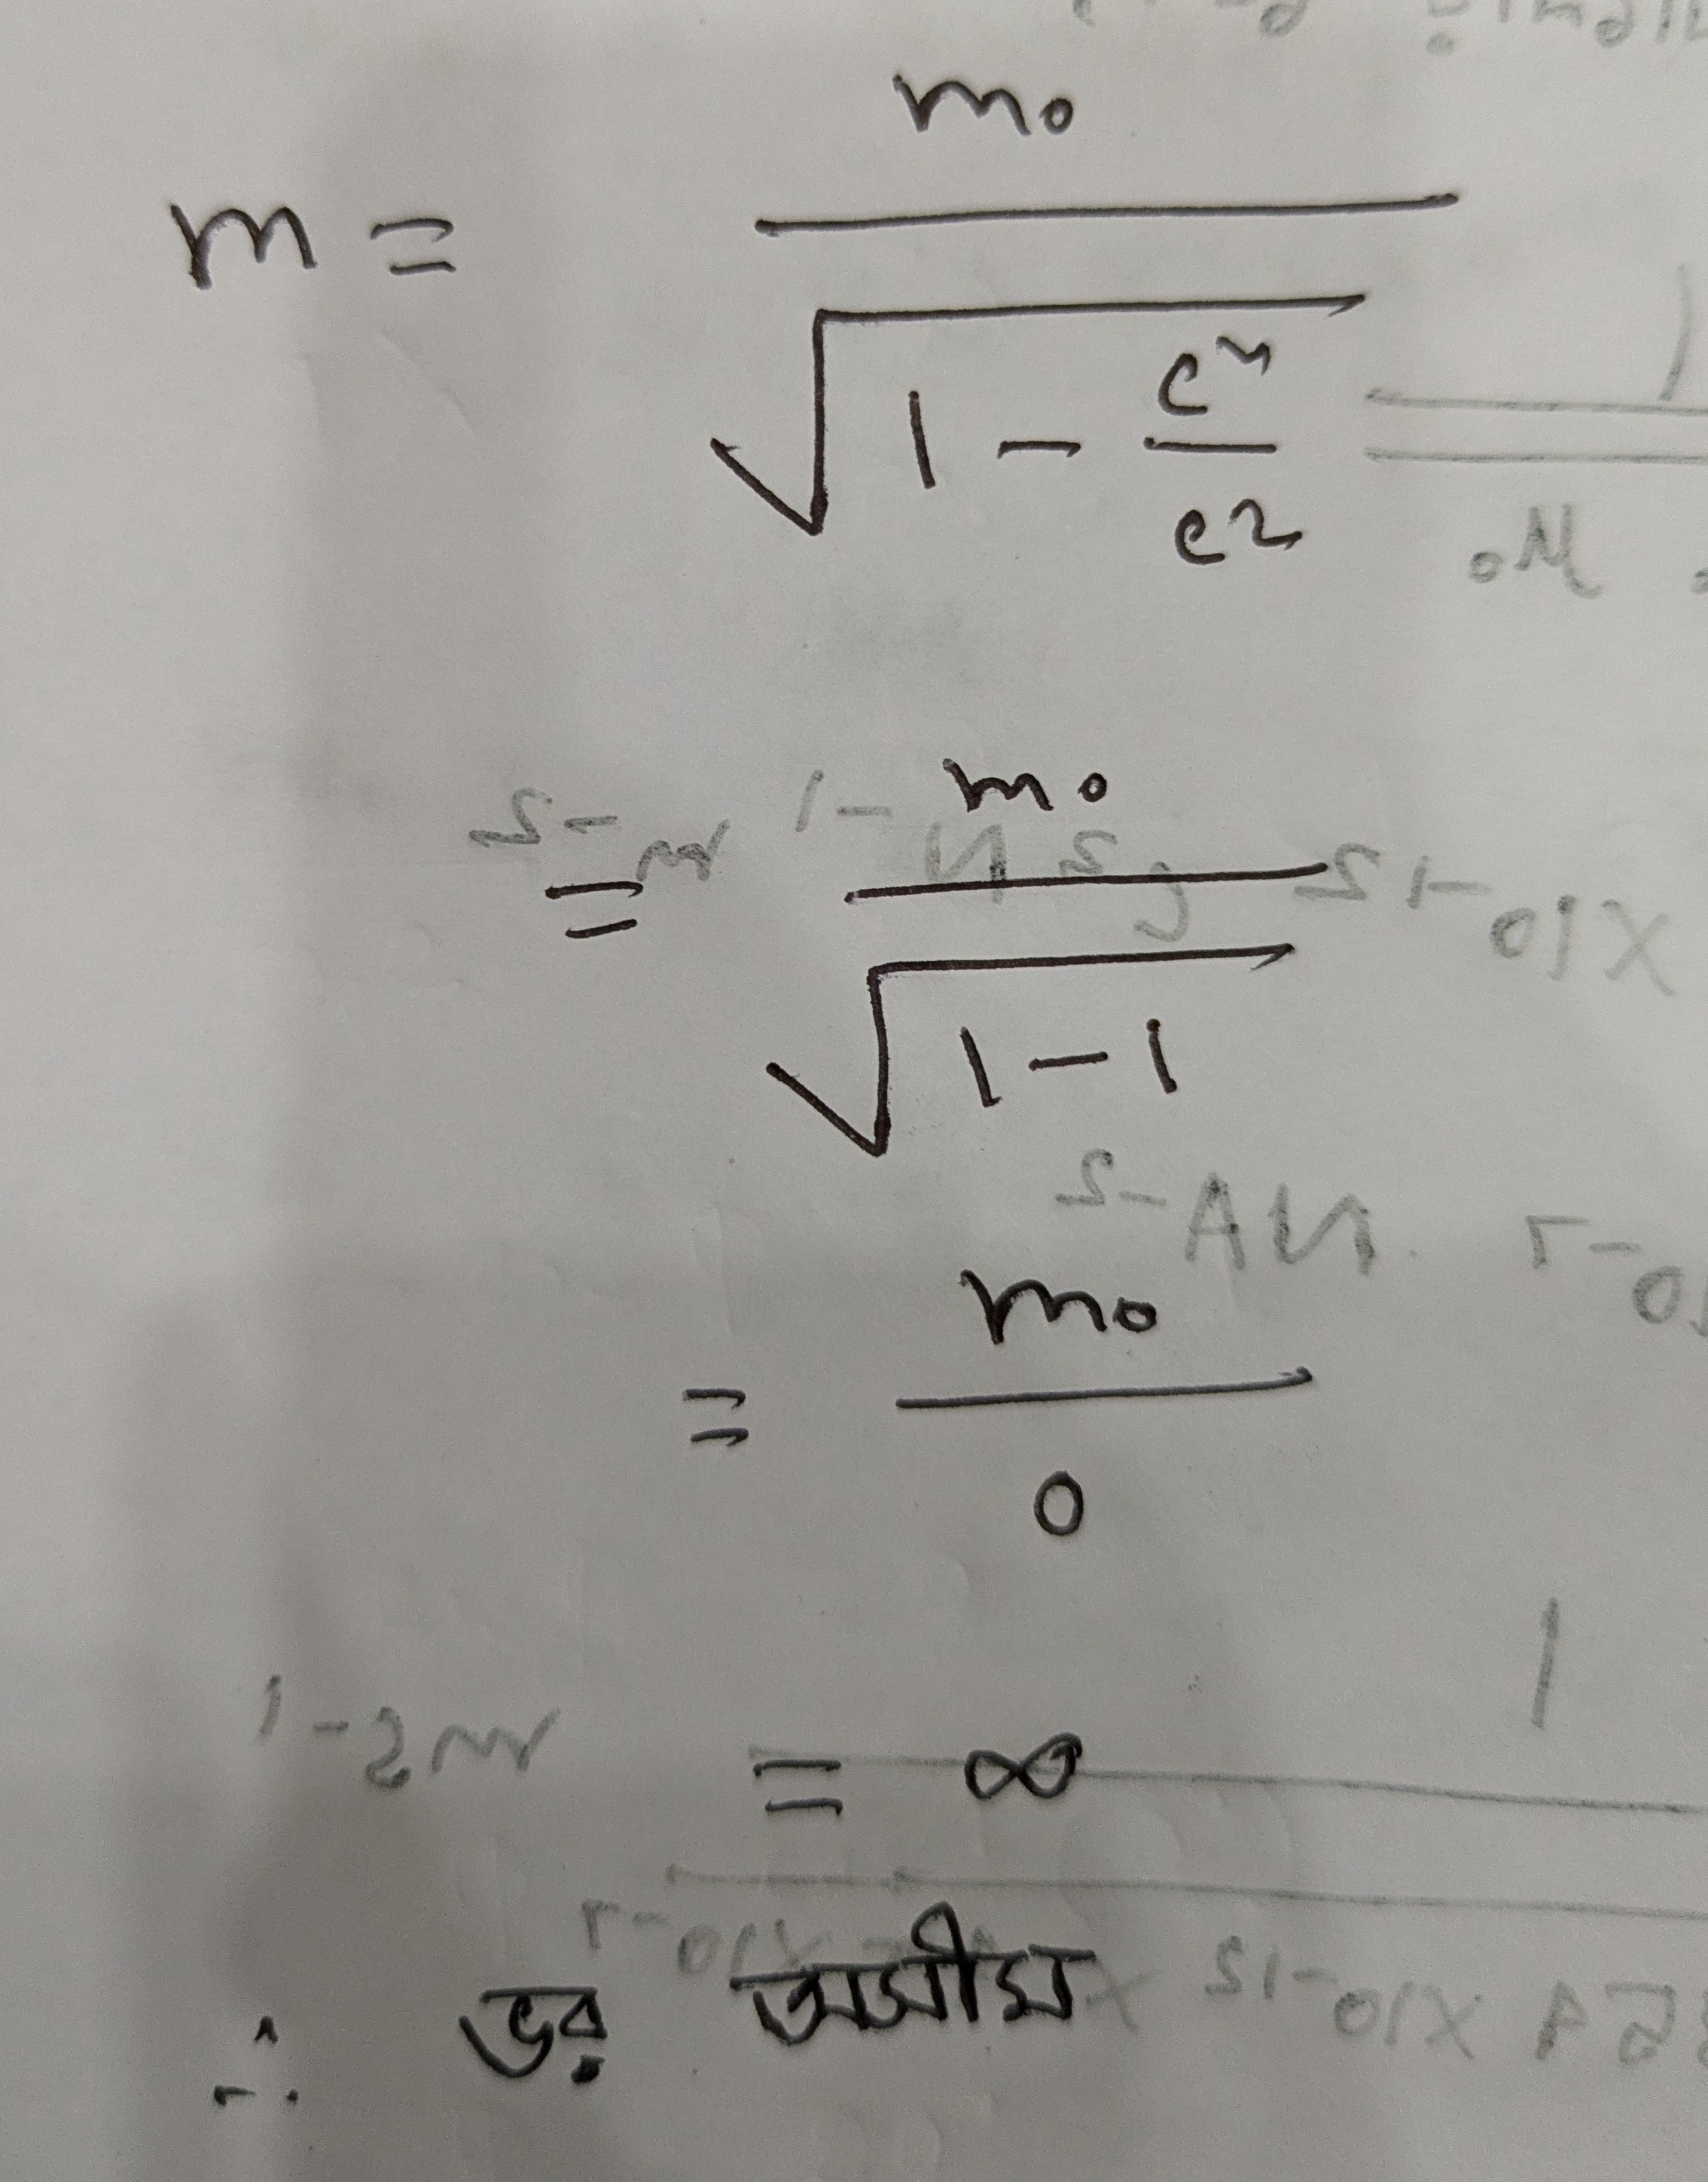 m = m₀ / √(1 - c² / c²)
= m₀ / √(1 - 1)
= m₀ / 0
= ∞
∴ ভর অসীম